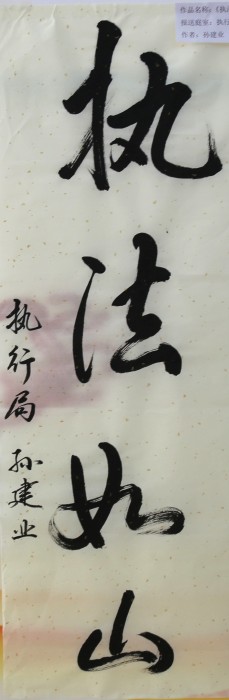 执法如山
执行局 孙建业
作品名称:《执
推送庭室:执行
作者:孙建业